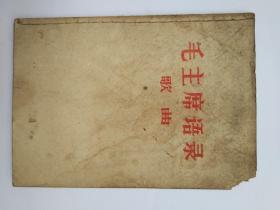 毛主席语录
歌曲